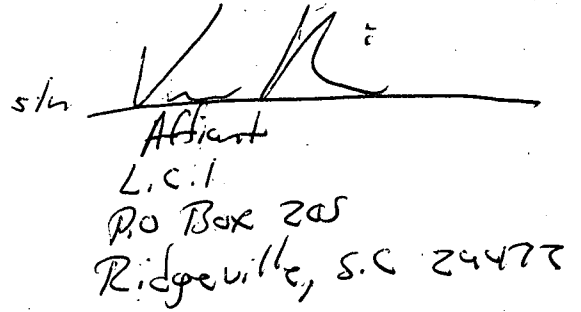 s/n
Affiant
L.C.I
P.O Box 205
Ridgeville, S.C 29472